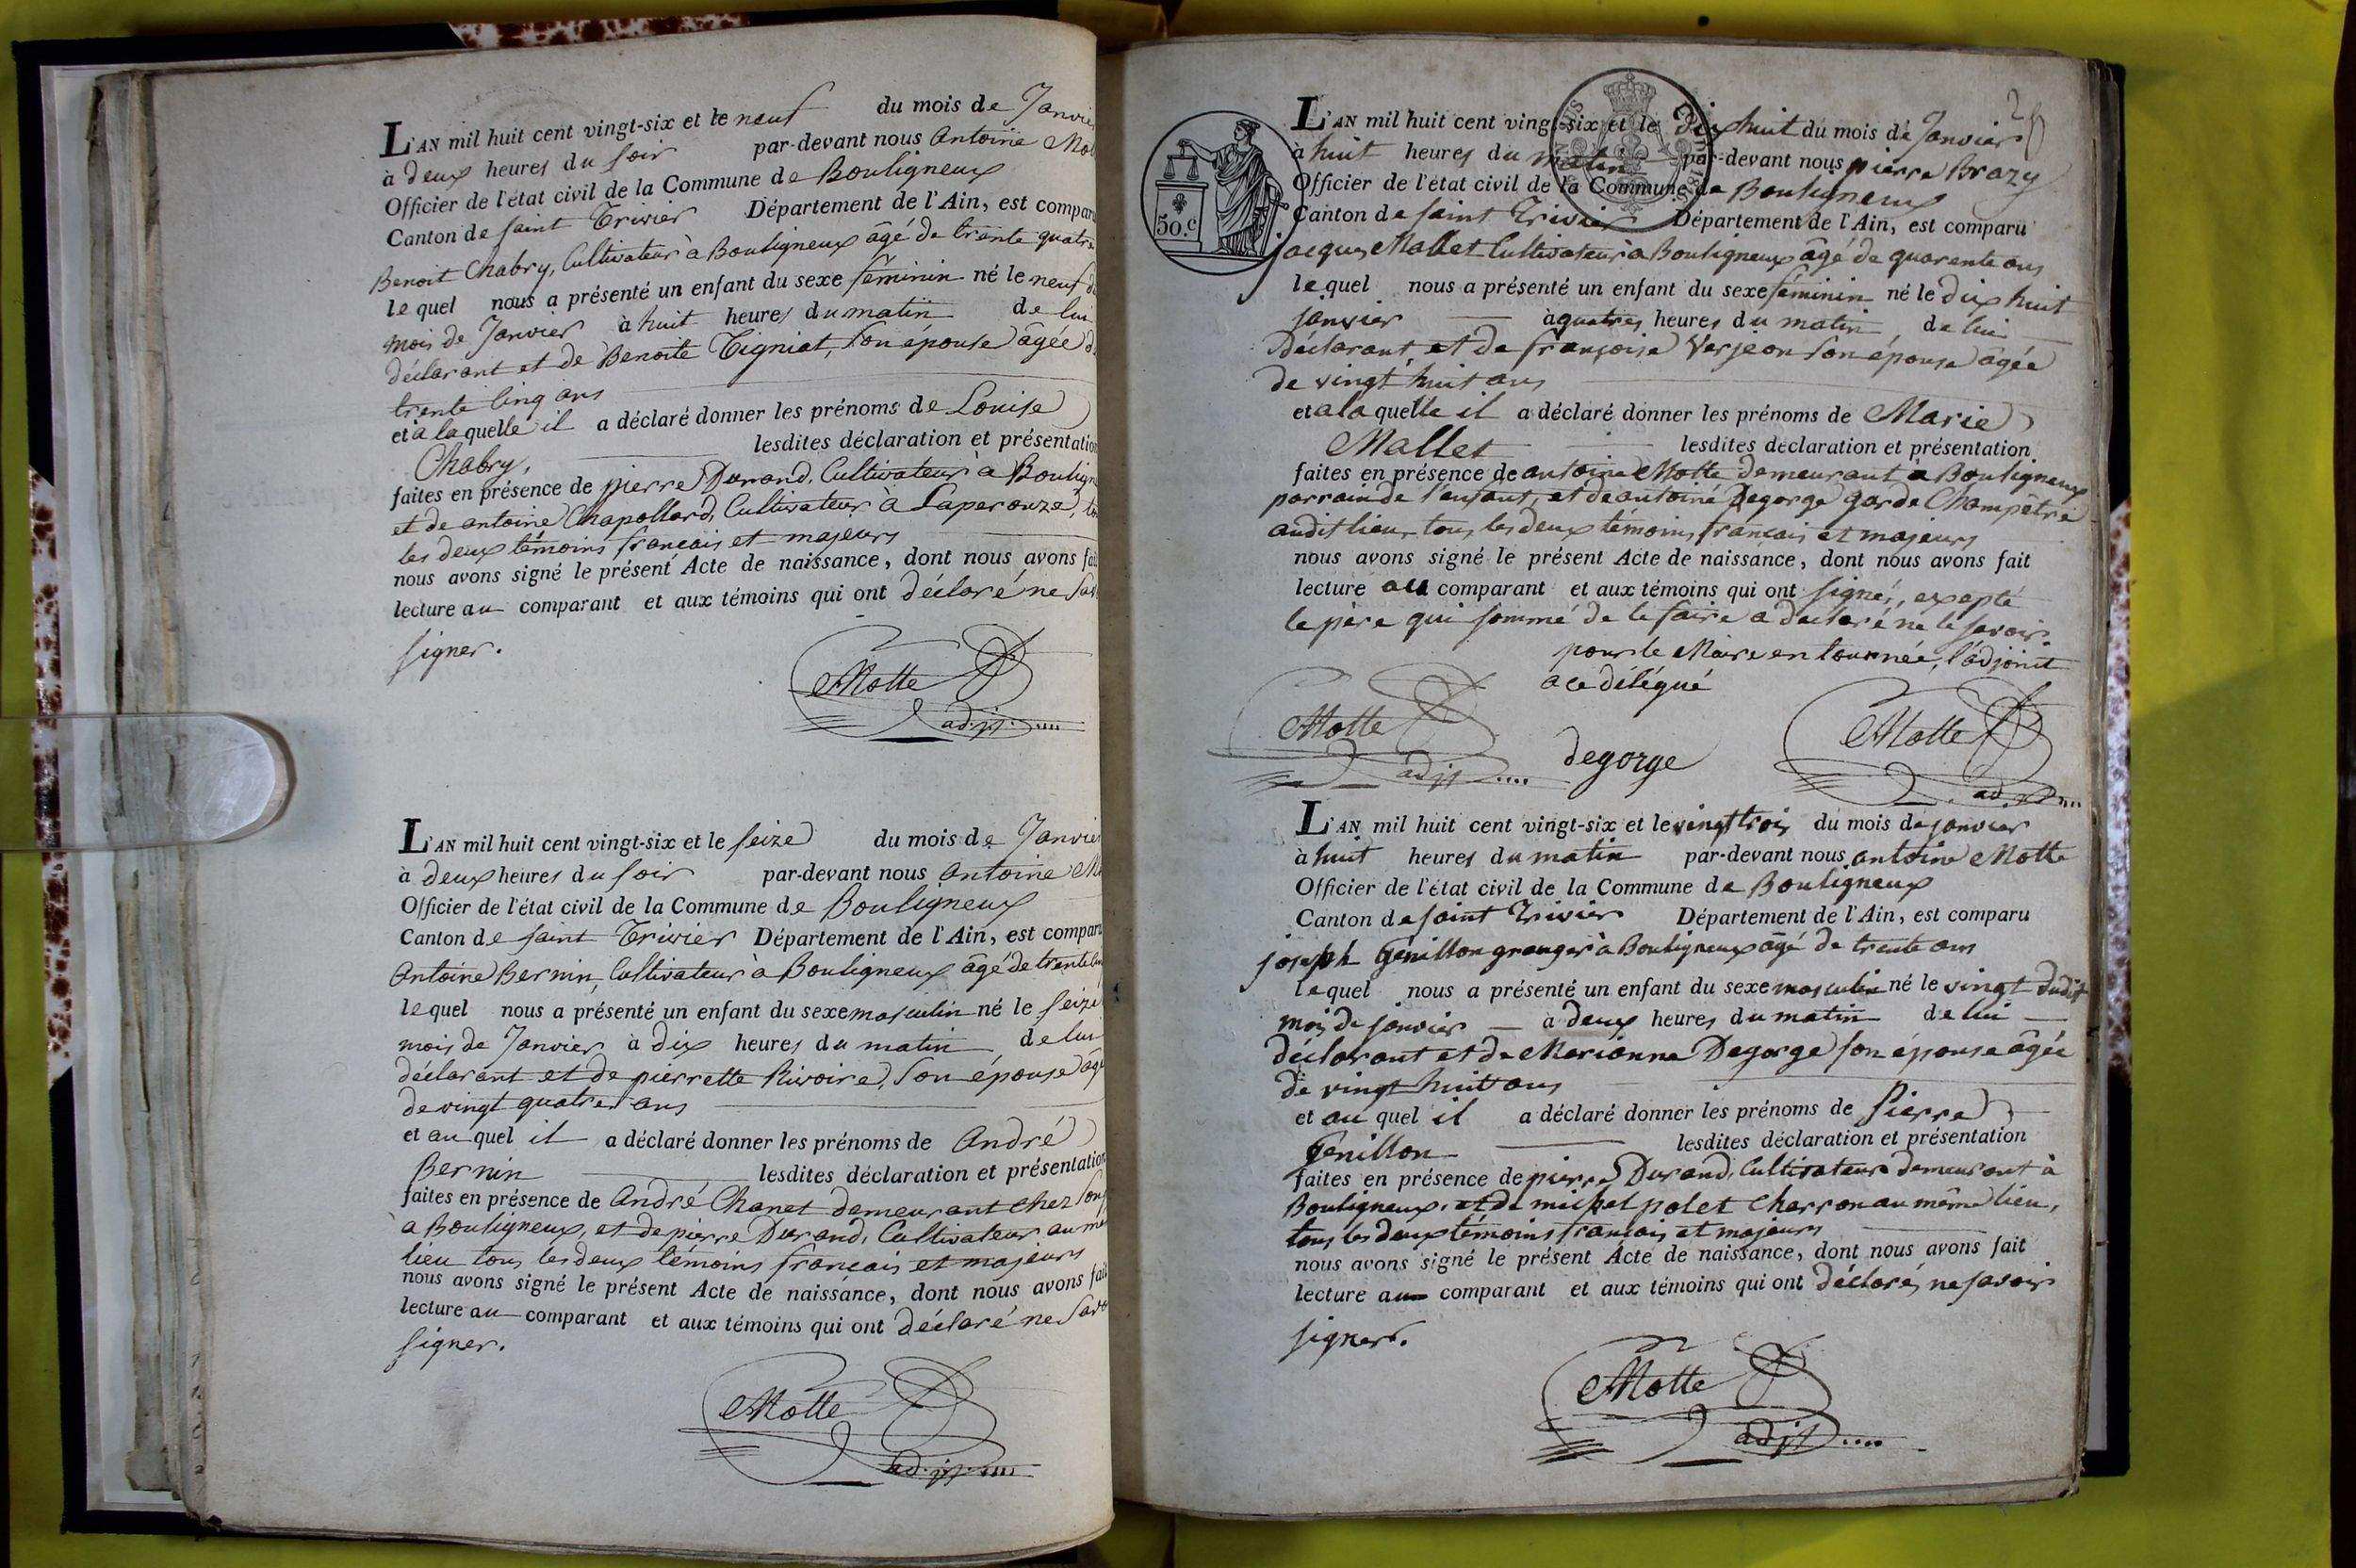 L'AN mil huit cent vingt-six et le neuf du mois de Janvier
à deux heures du soir par-devant nous Antoine Mot
Officier de l'état civil de la Commune de Bouligneux
Canton de saint Trivier Département de l'Ain, est comparu
Benoit Chabry, Cultivateur à Bouligneux âgé de trente quatre
le quel nous a présenté un enfant du sexe féminin né le neuf du
mois de Janvier à huit heures du matin de lui
déclarant et de Benoite Tigniat, son épouse âgée de
trente cinq ans
et à la quelle il a déclaré donner les prénoms de Louise
Chabry, lesdites déclaration et présentation
faites en présence de pierre Durand, Cultivateur à Bouligne
et de antoine Chapollard, Cultivateur à Laperouze, to
les deux témoins francais et majeurs
nous avons signé le présent Acte de naissance, dont nous avons fait
lecture au comparant et aux témoins qui ont déclaré ne sav
signer.
Motte
adj.
L'AN mil huit cent vingt-six et le seize du mois de Janvier
à deux heures du soir par-devant nous Antoine Mo
Officier de l'état civil de la Commune de Bouligneux
Canton de saint Trivier Département de l'Ain, est comparu
Antoine Bernin, Cultivateur à Bouligneux âgé de trente
le quel nous a présenté un enfant du sexe masculin né le seize
mois de Janvier à dix heures du matin de lui
déclarant et de pierrette Rivoire, son épouse âgé
de vingt quatre ans
et au quel il a déclaré donner les prénoms de André
Bernin lesdites déclaration et présentation
faites en présence de André Chanet demeurant chez
à Bouligneux, et de pierre Durand, Cultivateur au mê
lieu tous les deux témoins francais et majeurs
nous avons signé le présent Acte de naissance, dont nous avons fait
lecture au comparant et aux témoins qui ont déclaré ne savo
signer.
Motte
adj.
L'AN mil huit cent vingt-six et le dix huit du mois de Janvier
à huit heures du matin par-devant nous pierre Brazy
Officier de l'état civil de la Commune de Bouligneux
50.c
Canton de saint Trivier Département de l'Ain, est comparu
jacques Mallet Cultivateur à Bouligneux âgé de quarente ans
le quel nous a présenté un enfant du sexe féminin né le dix huit
janvier à quatres heures du matin de lui
Déclarant, et de françoise Verjeon son épouse agée
de vingt huit ans
et a la quelle il a déclaré donner les prénoms de Marie
Mallet lesdites déclaration et présentation
faites en présence de antoine Motte demeurant à Bouligneux
parrain de l'enfant, et de antoine Degorge garde Champêtre
audit lieu, tous les deux témoins francais et majeurs
nous avons signé le présent Acte de naissance, dont nous avons fait
lecture au comparant et aux témoins qui ont signé, exepté
le père qui sommé de le faire a declaré ne le savoir
pour le Maire en tournée, l'adjoint
a ce délégué
Motte
adjt
degorge
Motte
adjt
L'AN mil huit cent vingt-six et le vingt trois du mois de janvier
à huit heures du matin par-devant nous antoine Motte
Officier de l'état civil de la Commune de Bouligneux
Canton de saint Trivier Département de l'Ain, est comparu
joseph Genillon granger à Bouligneux âgé de trente ans
le quel nous a présenté un enfant du sexe masculin né le vingt dudit
mois de janvier à deux heures du matin de lui
déclarant et de Marianne Degorge son épouse âgée
de vingt huit ans
et au quel il a déclaré donner les prénoms de Pierre
Genillon lesdites déclaration et présentation
faites en présence de pierre Durand, Cultivateur demeurant à
Bouligneux, et de michel polet Charron au même lieu,
tous les deux témoins francais et majeurs
nous avons signé le présent Acte de naissance, dont nous avons fait
lecture au comparant et aux témoins qui ont déclaré, ne savoir
signer.
Motte
adjt